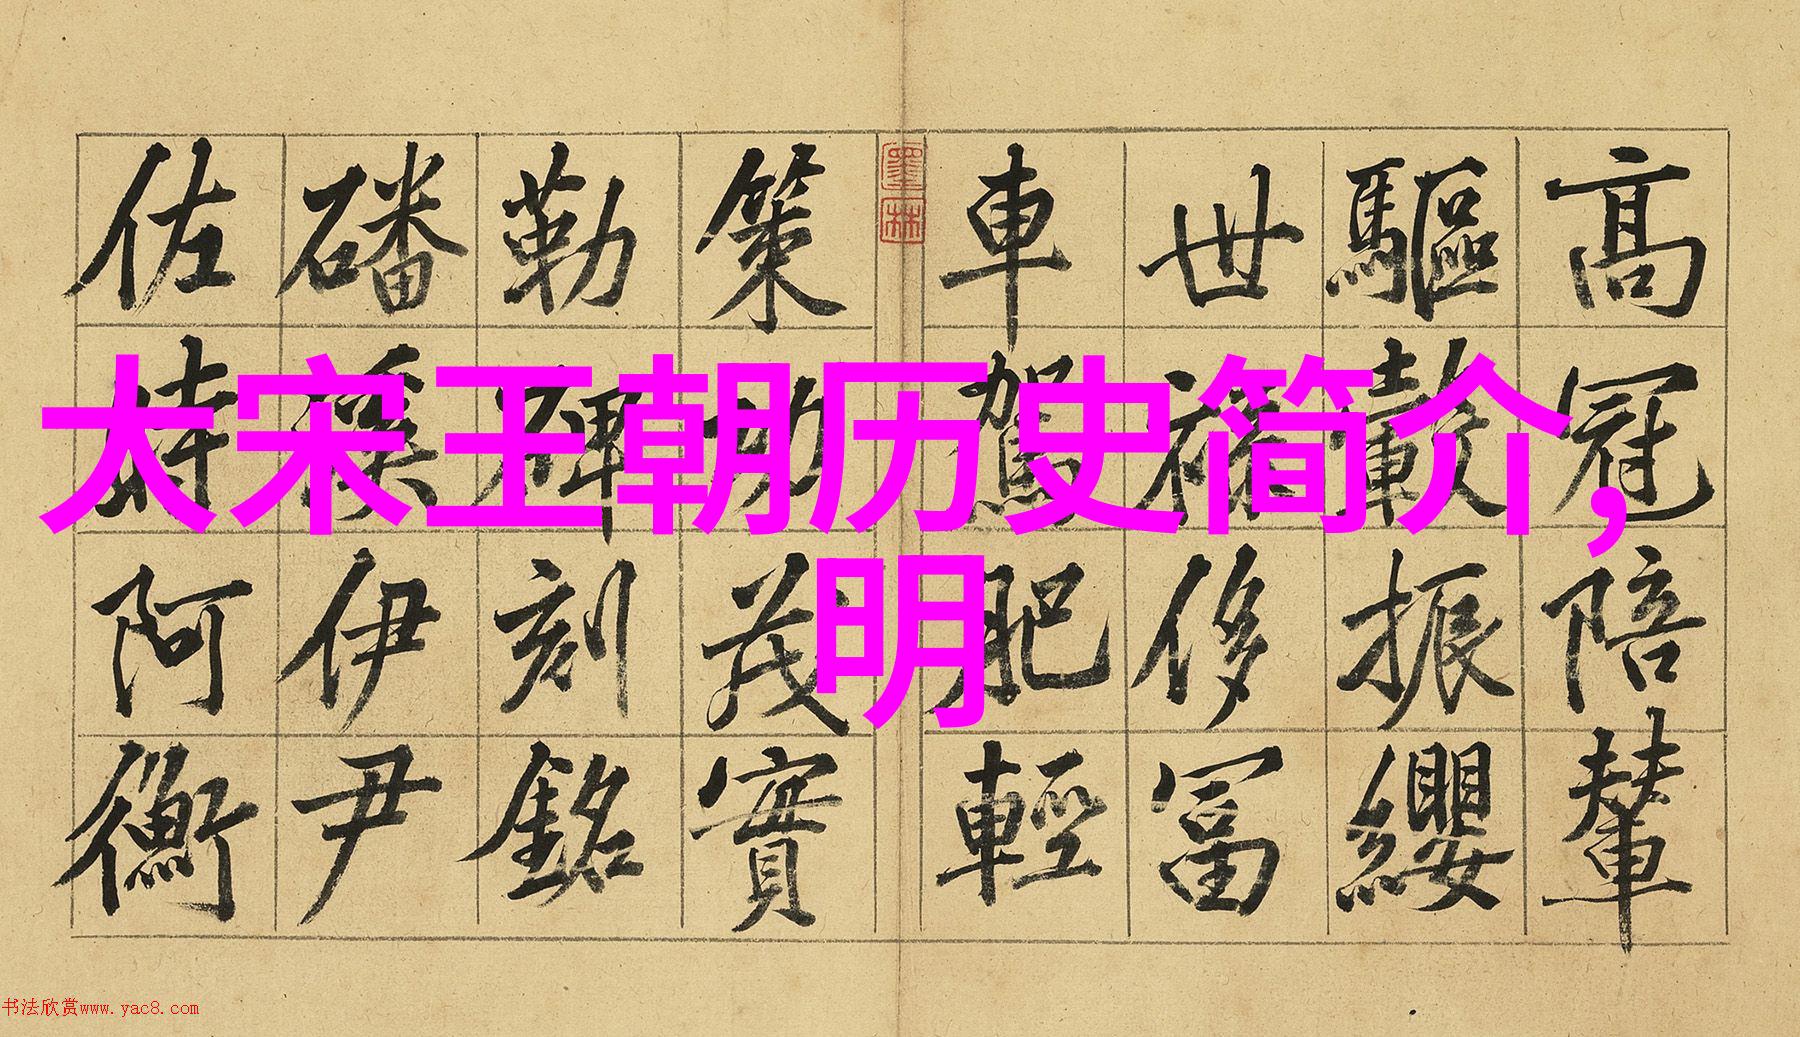 大宋王朝历史简介,
明
高冠陪輦
驅轂振纓
世祿侈富
車駕肥輕
策功茂實
勒碑刻銘
磻溪伊尹
佐時阿衡
墨林
书法欣赏www.yac8.com